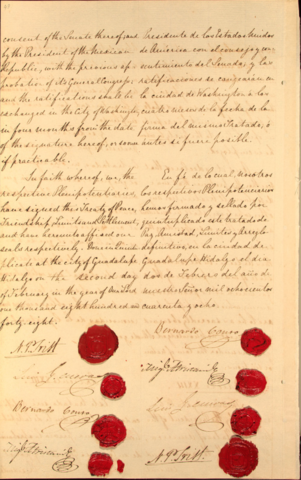 consent of the Senate thereof; and
by the President of the Mexican
Republic, with the previous ap-
probation of its General Congress;
and the ratifications shall be
exchanged in the City of Washington,
in four months from the date
of the signature hereof, or sooner
if practicable.
In faith whereof, we, the
respective Plenipotentiaries,
have signed this Treaty of Peace,
Friendship, Limits and Settlement,
and have hereunto affixed our
seals respectively. Done in Quintu-
plicate at the city of Guadalupe
Hidalgo on the second day
of February in the year of our Lord
one thousand eight hundred and
forty-eight.
Presidente de los Estados Unidos
de America con el consejo y con-
sentimiento del Senado; y las
ratificaciones se canjearán en
la ciudad de Washington a los
cuatro meses de la fecha de la
firma del mismo Tratado, ó
antes si fuere posible.
En fé de lo cual, nosotros
los respectivos Plenipotenciarios
hemos firmado y sellado por
quintuplicado este tratado de
Paz, Amistad, Limites y Arreglo
definitivo, en la ciudad de
Guadalupe Hidalgo el dia
dos de Febrero del año de
nuestro Señor mil ochocientos
cuarenta y ocho.
N. P. Trist
Luis G. Cuevas
Bernardo Couto
Migl. Atristain
Bernardo Couto
Migl. Atristain
Luis G. Cuevas
N. P. Trist